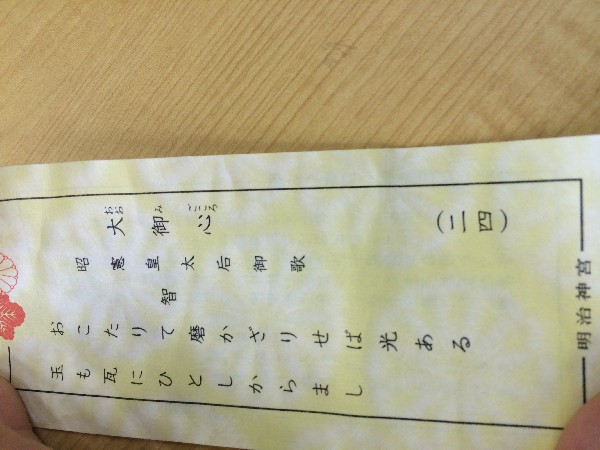 大御心 （二四）
おお み ごころ
昭憲皇太后御歌
智
おこたりて磨かざりせば光ある
玉も瓦にひとしからまし
明治神宮